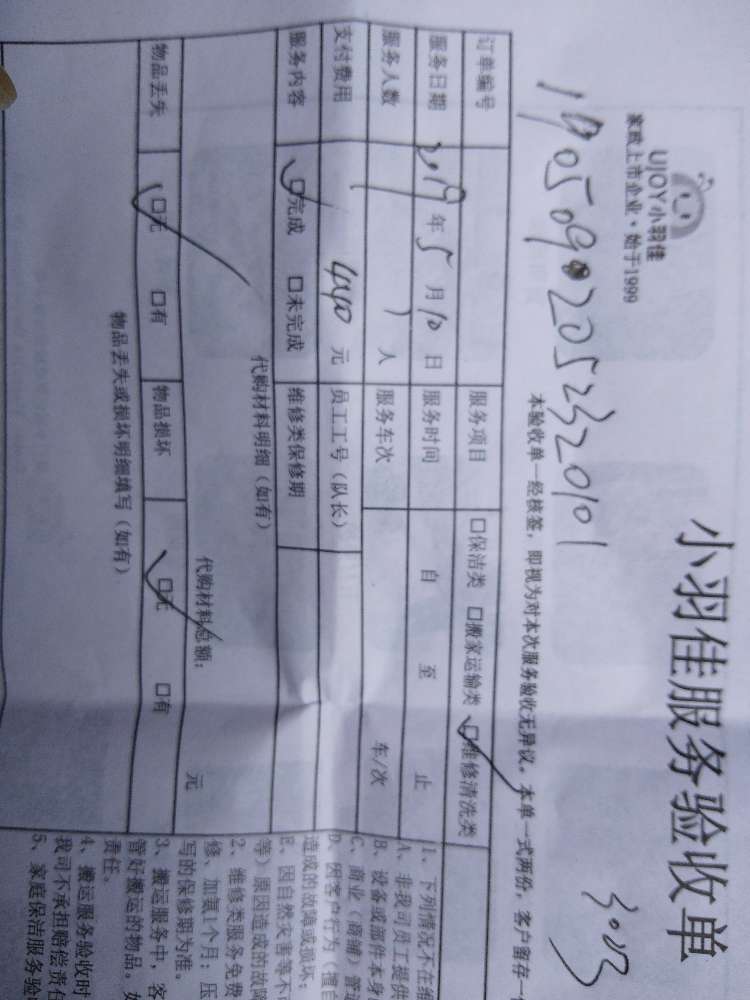 小羽佳服务验收单
UJOY小羽佳
家政上市企业·始于1999
3003
1905092052320101
本验收单一经核签，即视为对本次服务验收无异议。本单一式两份，客户留存一
订单编号 服务项目 □保洁类 □搬家运输类 □维修清洗类
服务日期 2019年5月10日 服务时间 自 至 止
服务人数 1人 服务车次 车/次
支付费用 440元 员工工号（队长）
服务内容 □完成 □未完成 维修类保修期
代购材料明细（如有）
代购材料总额： 元
物品丢失 □无 □有 物品损坏 □无 □有
物品丢失或损坏明细填写（如有）
1、下列情况不在维
A、非我司员工提供
B、设备或部件本身
C、商业（商铺）管道
D、因客户行为（擅自
造成的故障或损坏；
E、因自然灾害等不
等）原因造成的故障
2、维修类服务免费
修、加氨1个月；压
写的保修期为准。
3、搬运服务中，客
管好搬运的物品。如
责任。
4、搬运服务验收时
我司不承担赔偿责任
5、家庭保洁服务验